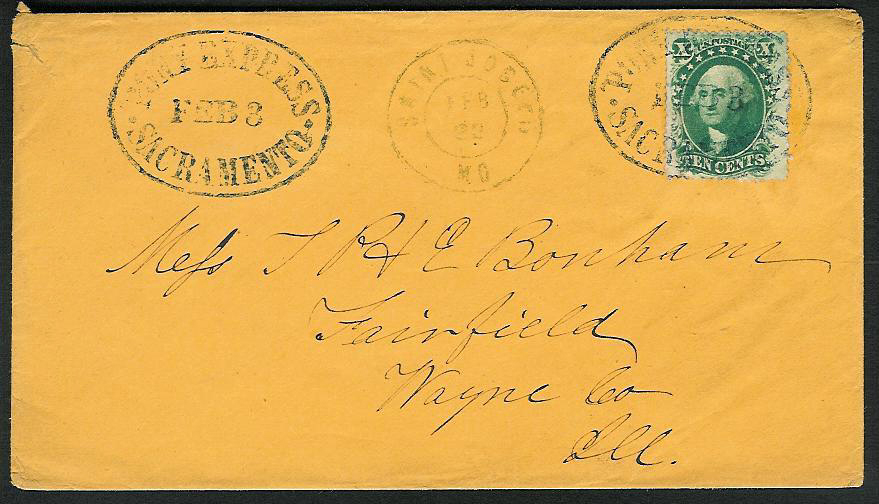 PONY EXPRESS
FEB 8
SACRAMENTO
SAINT JOSEPH
FEB
22
MO
PONY
8
SAC
X U.S. POSTAGE X
TEN CENTS
Mess T R H E Bonham
Fairfield
Wayne Co
Ill.